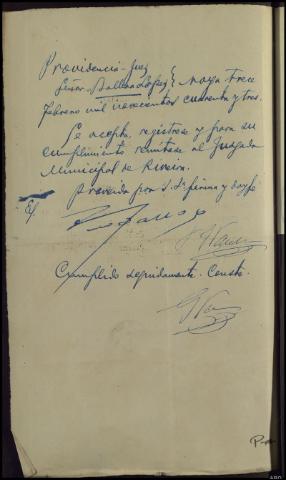 Providencia-Juez
Señor Balboa López } Noya trece
febrero mil novecientos cuarenta y tres.
Se acepta, regístrese y para su
cumplimiento remítase al Juzgado
Municipal de Riveira.
Proveído por S. Sª firma y doy fe
E/
Cumplido seguidamente. Consta.